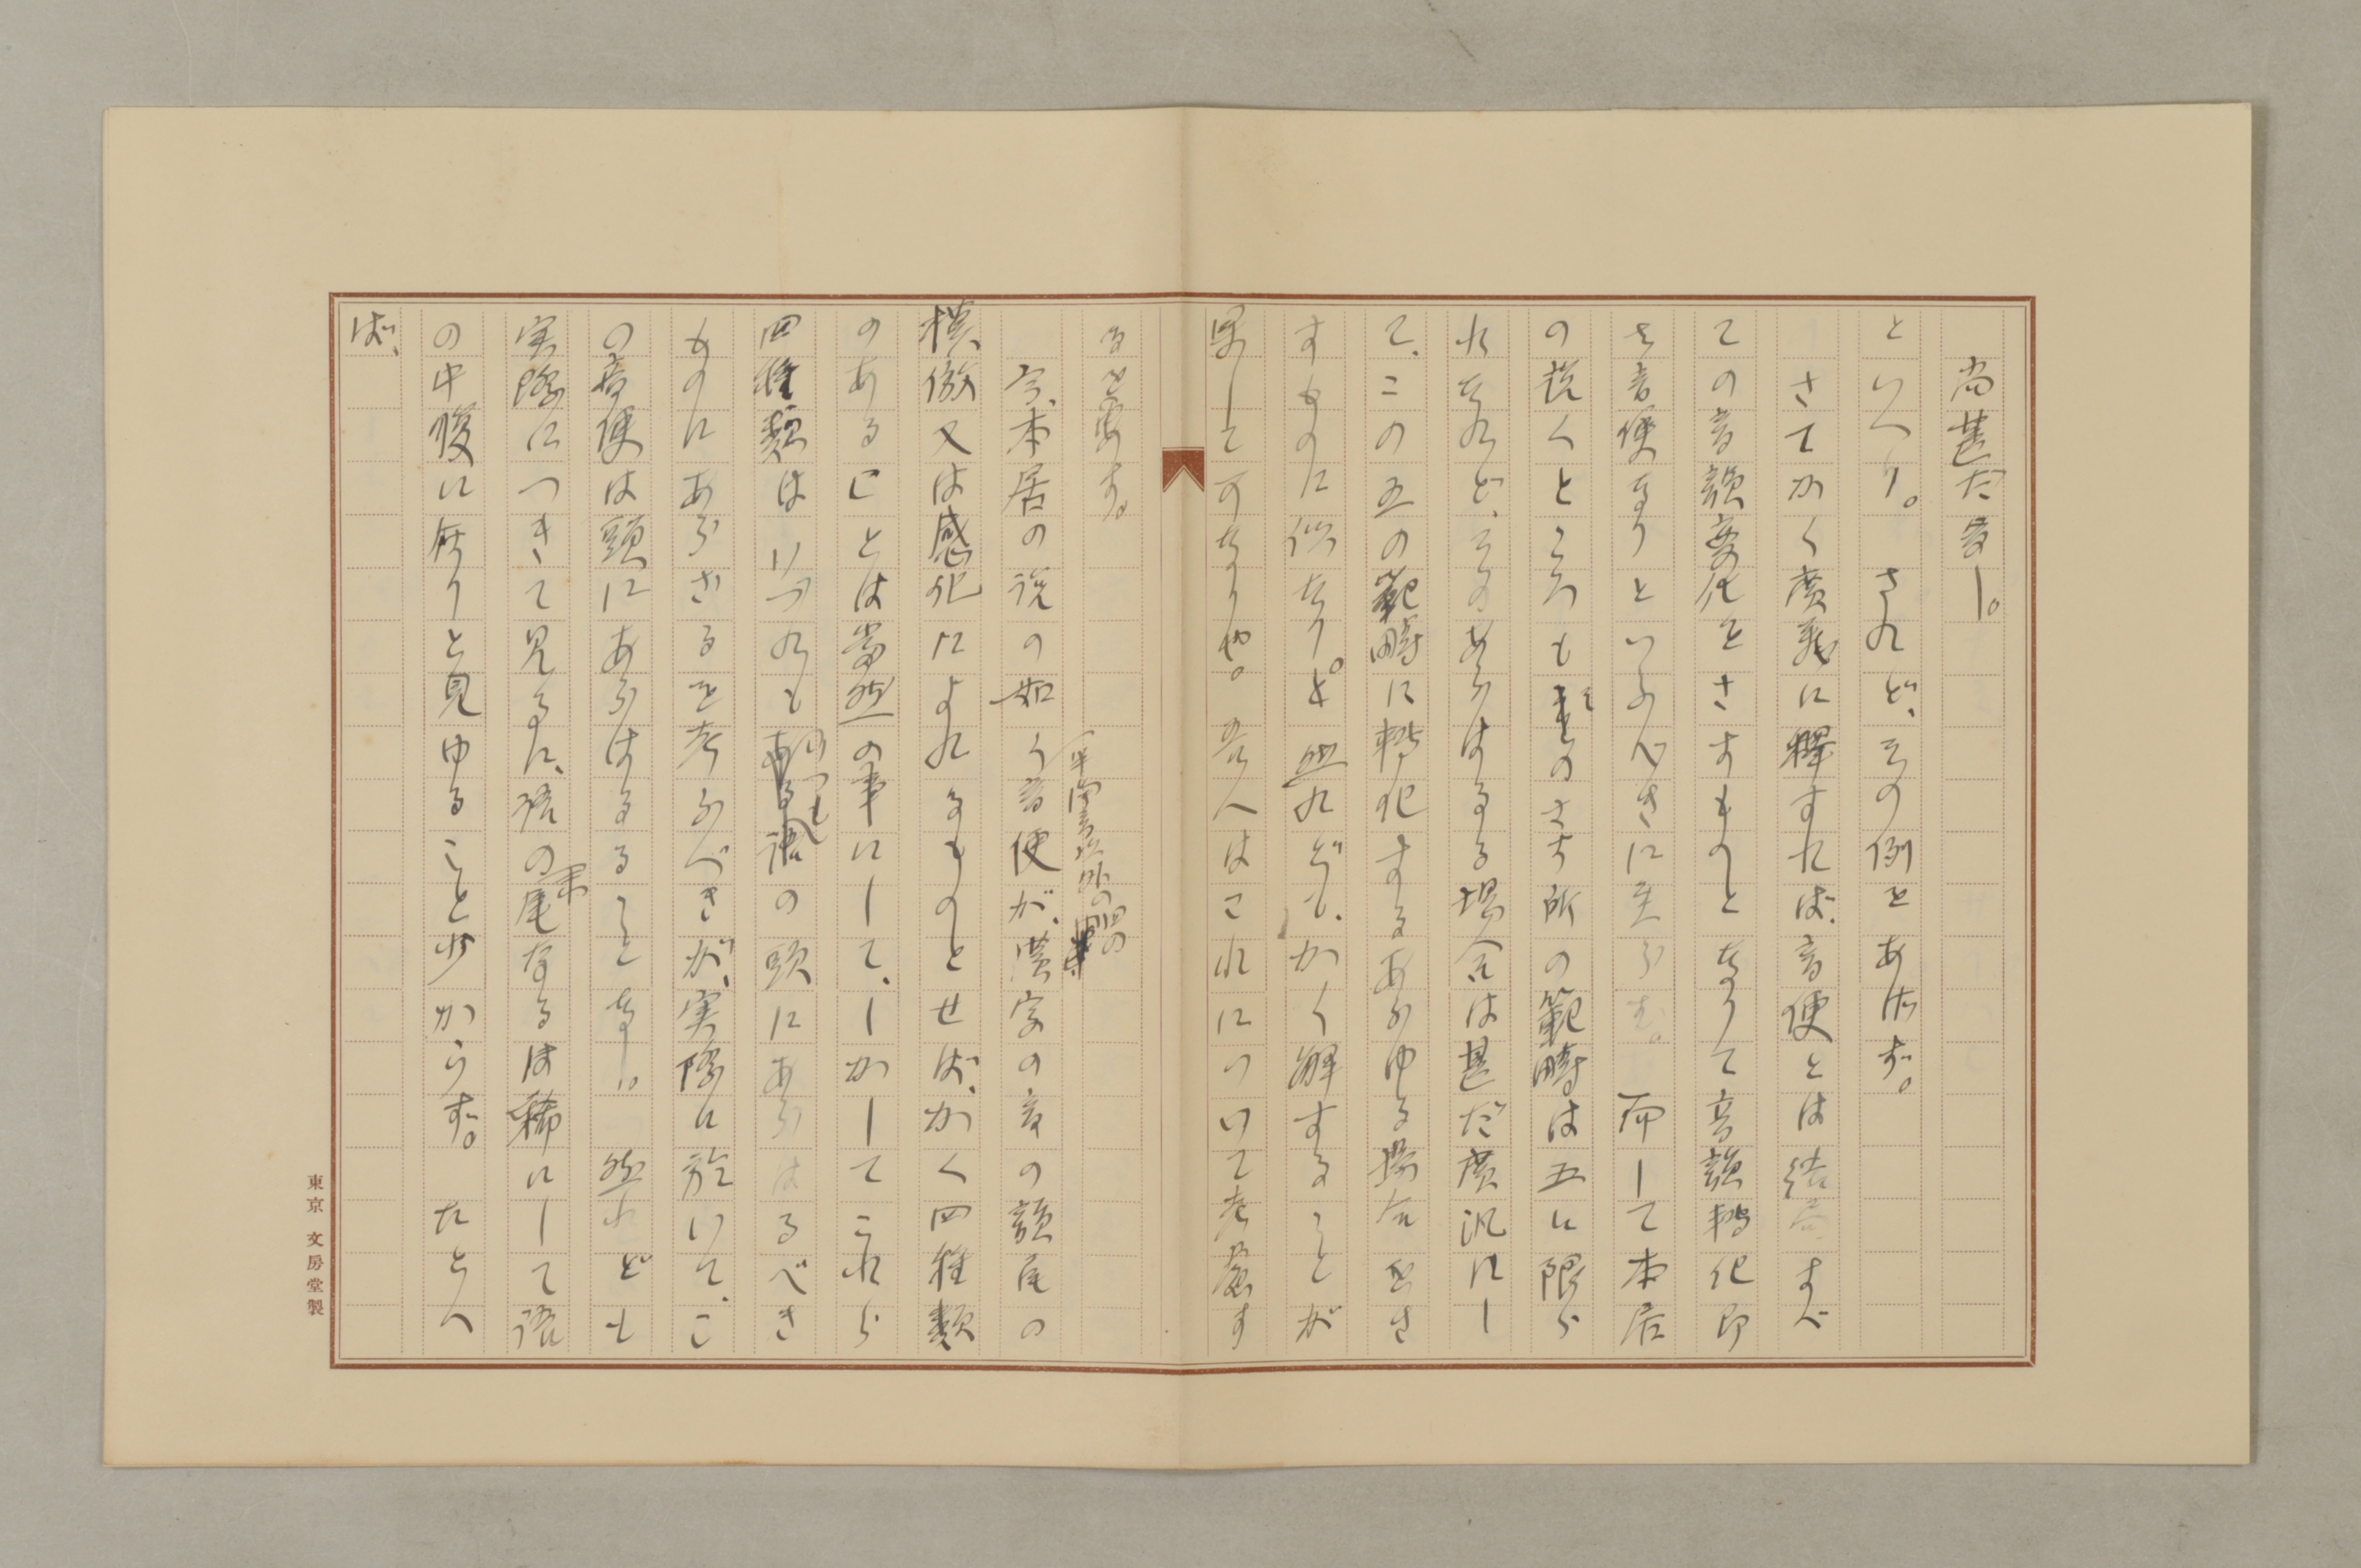 尚甚だ多し。
といへり。　されど、その例をあげず。
さてかく廣義に釋すれば、音便とは結局すべ
ての音韻変化をさすものとなりて音韻轉化即
ち音便なりといふべきに至らむ。　而して本居
の説くところもその五ヶ所の範疇は五に限ら
れたれど、そのあらはるる場合は甚だ廣汎にし
て、この五の範疇に轉化するあらゆる場合をさ
すものに似たり。と然れども、かく解することが
果して可なりや。　吾人はこれについて考慮す
るを要す。
今、本居の説の如く音便が、漢字の音の韻尾の
平閉音以外の四の
模倣又は感化によれるものとせば、かく四種類
のあることは當然の事にして、しかしてこれら
四種類はいづれも語の頭にあらはるべき
いつも
ものにあらざるを考ふべきが、実際に於いて、こ
の音便は頭にあらはるることなし。　然れども
実際につきて見るに、語の尾なるは稀にして語
末
の中腹に在りと見ゆること少からず。　たとへ
ば、
東京　文房堂製